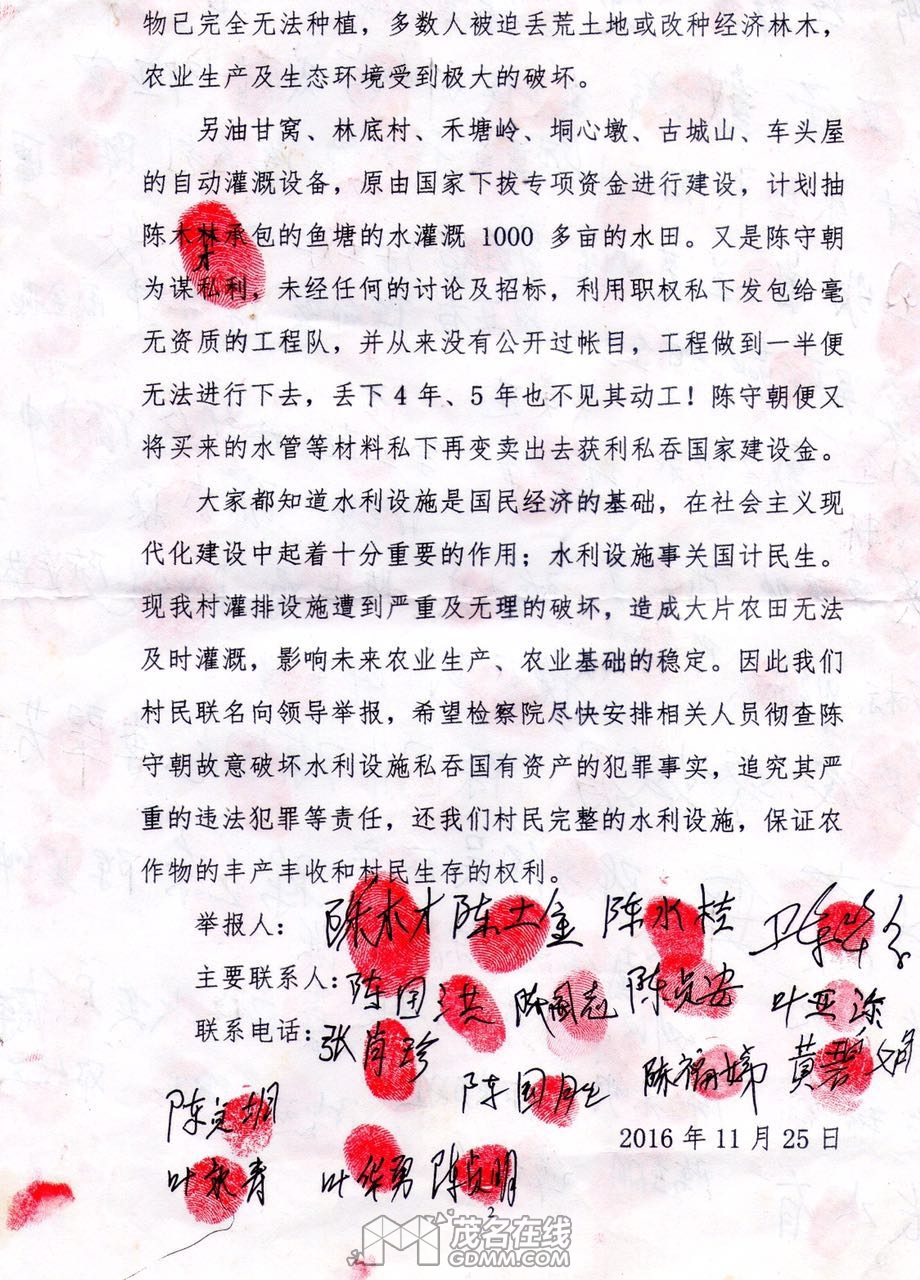 物已完全无法种植，多数人被迫丢荒土地或改种经济林木，
农业生产及生态环境受到极大的破坏。
另油甘窝、林底村、禾塘岭、垌心墩、古城山、车头屋
的自动灌溉设备，原由国家下拨专项资金进行建设，计划抽
陈木林承包的鱼塘的水灌溉 1000 多亩的水田。又是陈守朝
才
为谋私利，未经任何的讨论及招标，利用职权私下发包给毫
无资质的工程队，并从来没有公开过帐目，工程做到一半便
无法进行下去，丢下 4 年、5 年也不见其动工！陈守朝便又
将买来的水管等材料私下再变卖出去获利私吞国家建设金。
大家都知道水利设施是国民经济的基础，在社会主义现
代化建设中起着十分重要的作用；水利设施事关国计民生。
现我村灌排设施遭到严重及无理的破坏，造成大片农田无法
及时灌溉，影响未来农业生产、农业基础的稳定。因此我们
村民联名向领导举报，希望检察院尽快安排相关人员彻查陈
守朝故意破坏水利设施私吞国有资产的犯罪事实，追究其严
重的违法犯罪等责任，还我们村民完整的水利设施，保证农
作物的丰产丰收和村民生存的权利。
举报人： 陈木才 陈土金 陈水桂
主要联系人： 陈国洪 陈国志 陈贞安 叶亚
联系电话： 张肖珍
陈国胜 陈福娣 黄碧娟
陈 明
2016 年 11 月 25 日
叶永青 叶华勇 陈贞明
2
茂名在线
GDMM.COM